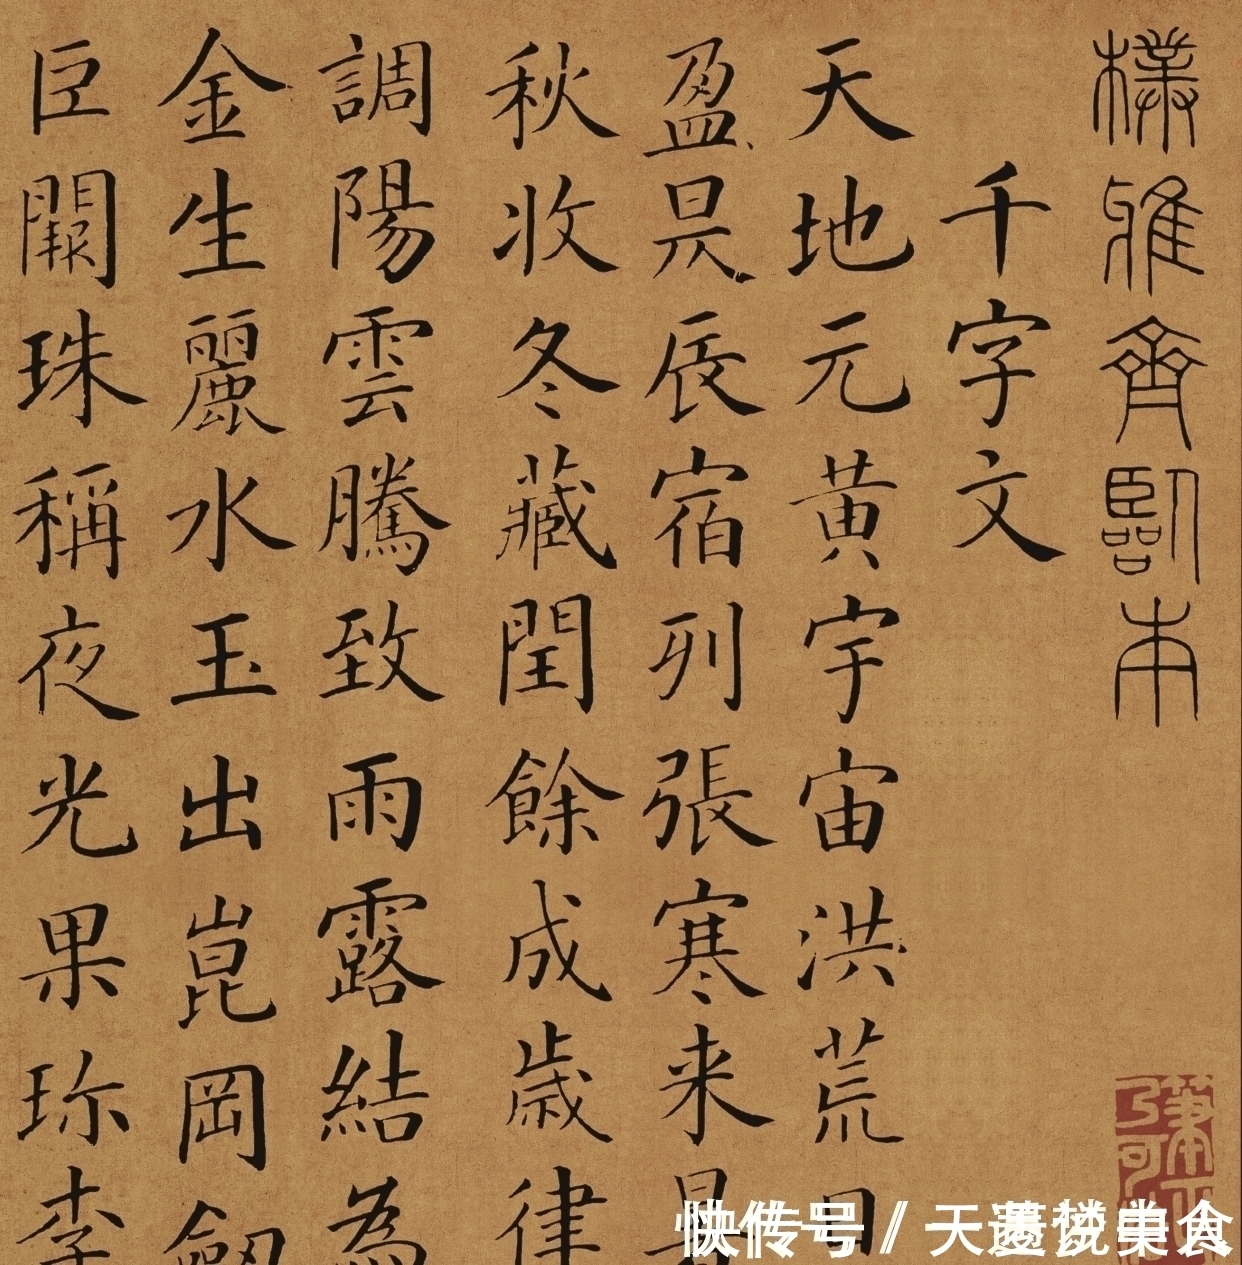 樸雅齋臨本
千字文
天地元黄宇宙洪荒日
盈昃辰宿列張寒来
秋收冬藏閏餘成歲律
調陽雲騰致雨露結為
金生麗水玉出崑岡劒
巨闕珠稱夜光果珎李
快传号 /